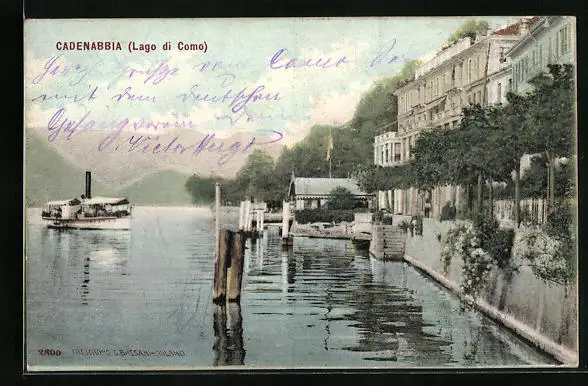 CADENABBIA (Lago di Como)
Herz. Grüsse vom Comosee
mit dem deutschen
Gesangverein
Victor Hugo
2800
G. BASSANI-MILANO